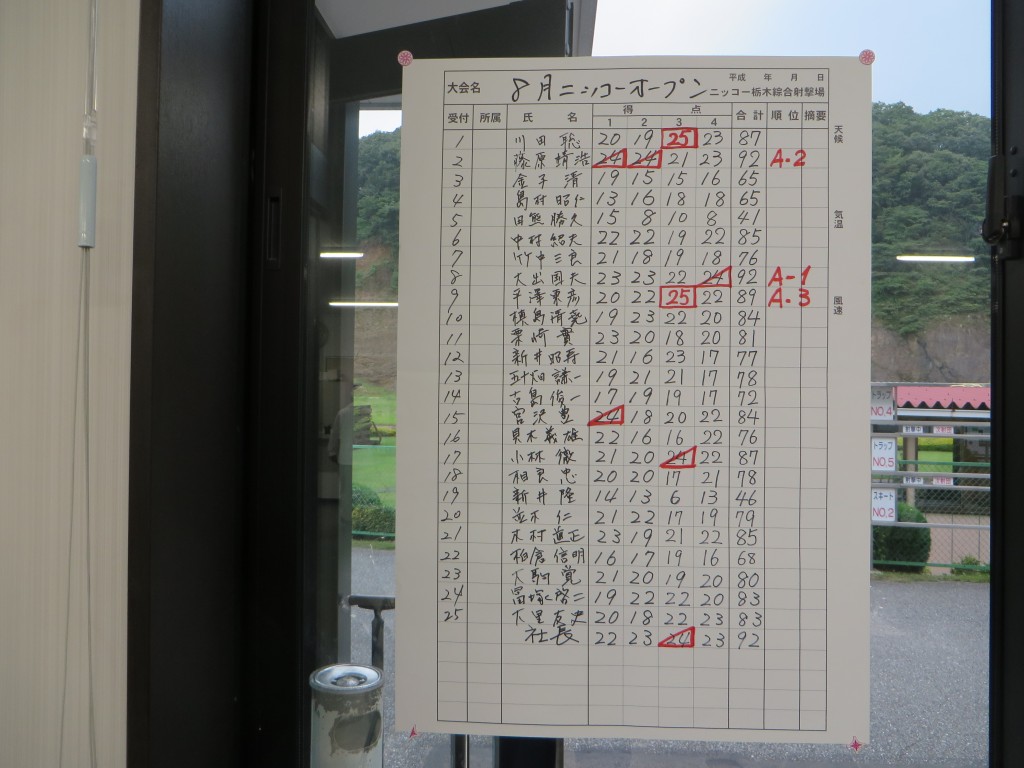 大会名 8月ニッコーオープン 平成 年 月 日
ニッコー栃木綜合射撃場
受付 所属 氏 名 得 点 合計 順位 摘要
1 2 3 4
1 川田 聡 20 19 25 23 87
2 藤原 靖浩 24 24 21 23 92 A-2
3 金子 清 19 15 15 16 65
4 島村 昭仁 13 16 18 18 65
5 田熊 勝夫 15 8 10 8 41
6 中村 紹夫 22 22 19 22 85
7 竹中 三良 21 18 19 18 76
8 大出 国夫 23 23 22 24 92 A-1
9 平澤 20 22 25 22 89 A.3
10 19 23 22 20 84
11 栗崎 實 23 20 18 20 81
12 新井 昭寿 21 16 23 17 77
13 謙一 19 21 21 17 78
14 古島 俊一 17 19 19 17 72
15 宮沢 豊 24 18 20 22 84
16 具木 義雄 22 16 16 22 76
17 小林 徹 21 20 24 22 87
18 相良 忠 20 20 17 21 78
19 新井 隆 14 13 6 13 46
20 並木 仁 21 22 17 19 79
21 木村 直正 23 19 21 22 85
22 柏倉 信明 16 17 19 16 68
23 大駒 覚 21 20 19 20 80
24 冨塚 啓二 19 22 22 20 83
25 大里 友史 20 18 22 23 83
社長 22 23 24 23 92
天候
気温
風速
トラップ
NO.4
トラップ
NO.5
スキート
NO.2